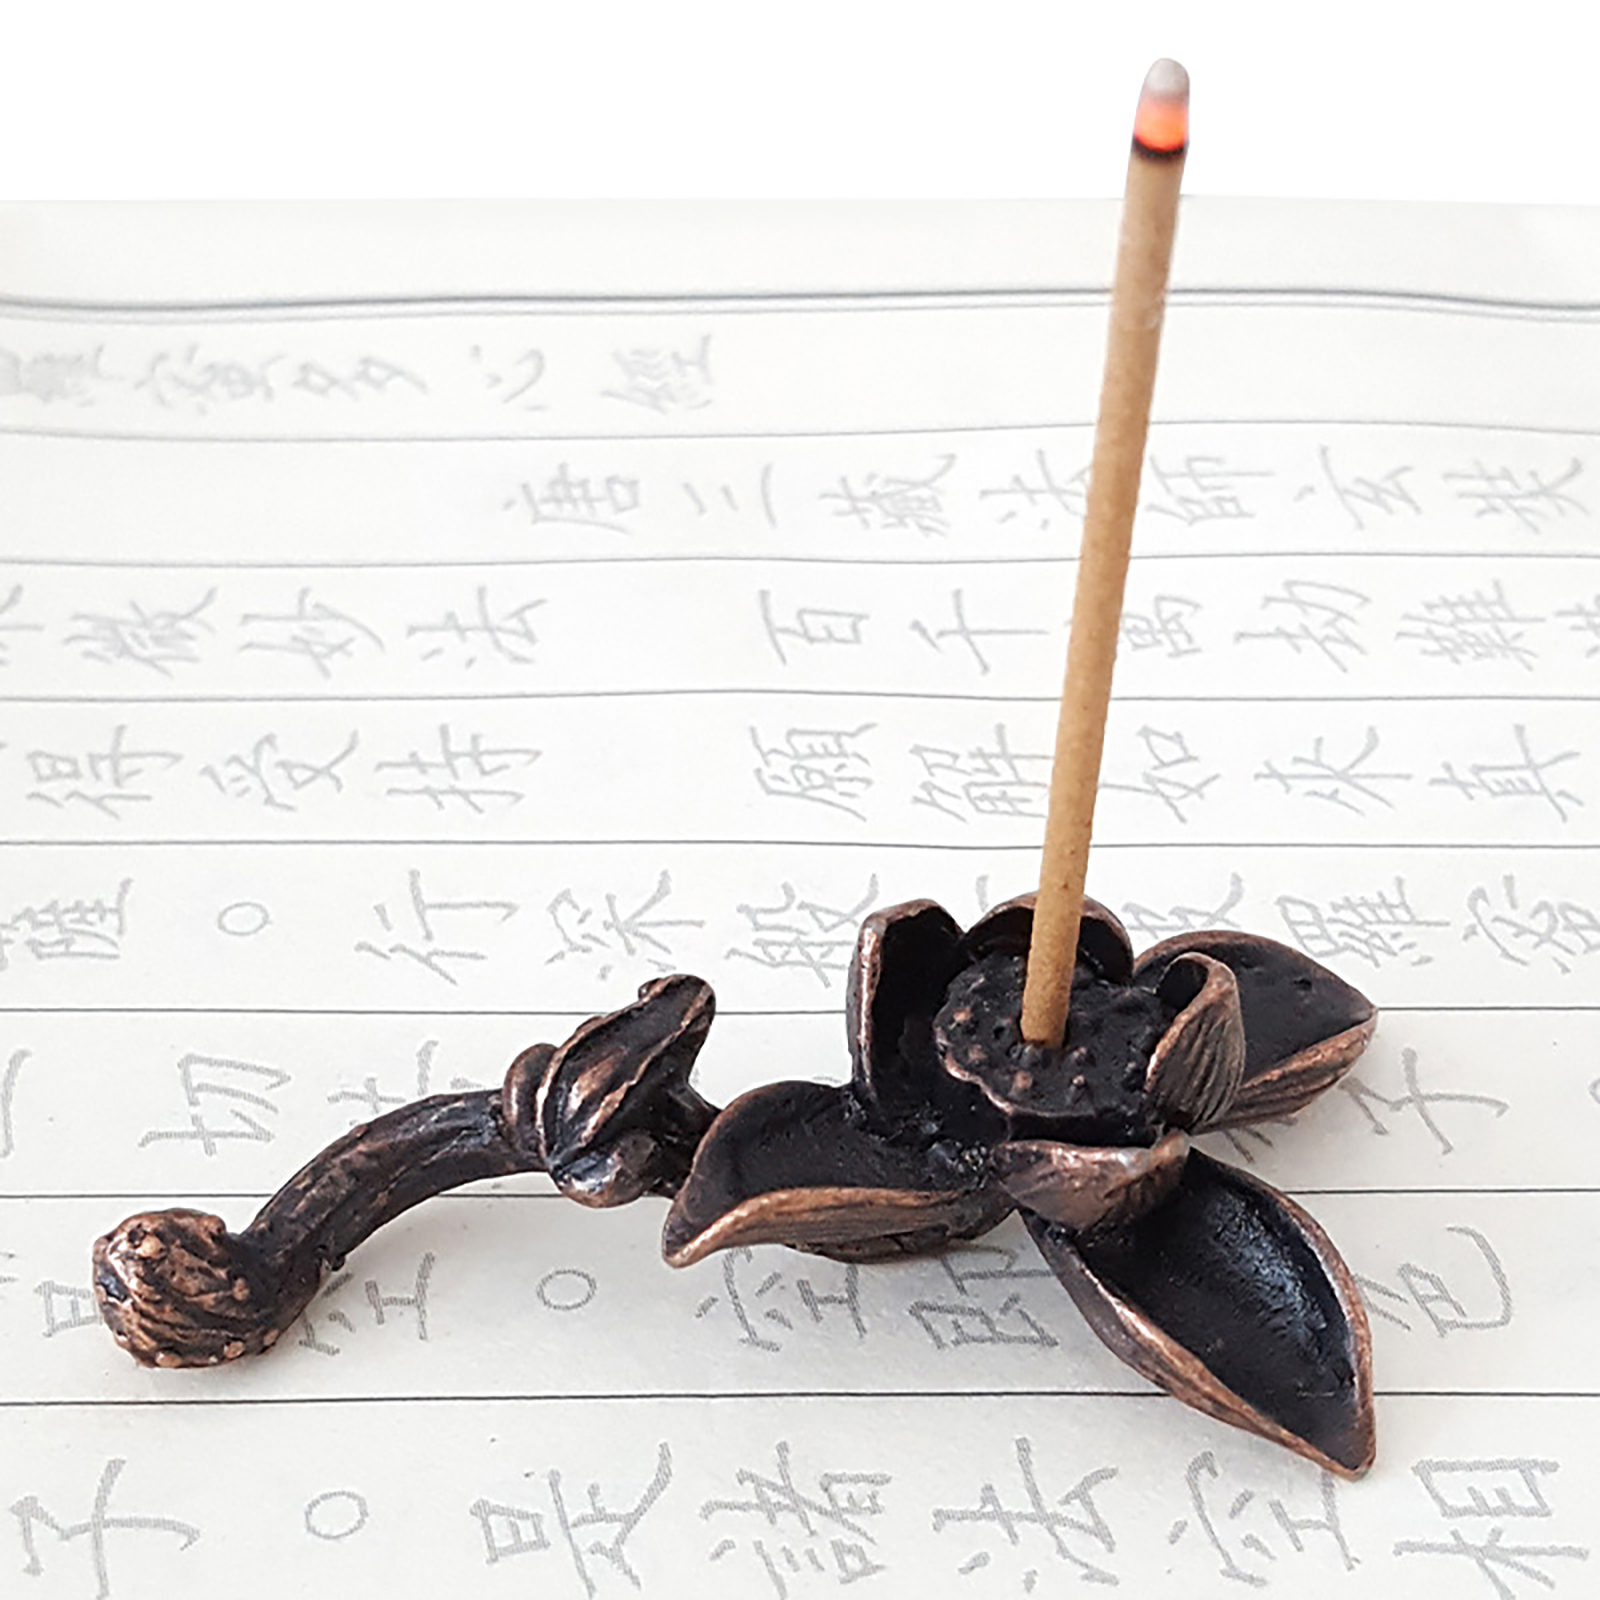 羅蜜多心經
唐三藏法師玄奘
微妙法　百千萬劫難
得受持　願解如來真
薩。行深般 波羅蜜
切苦 子
是空。空即 色
子。是諸法空相